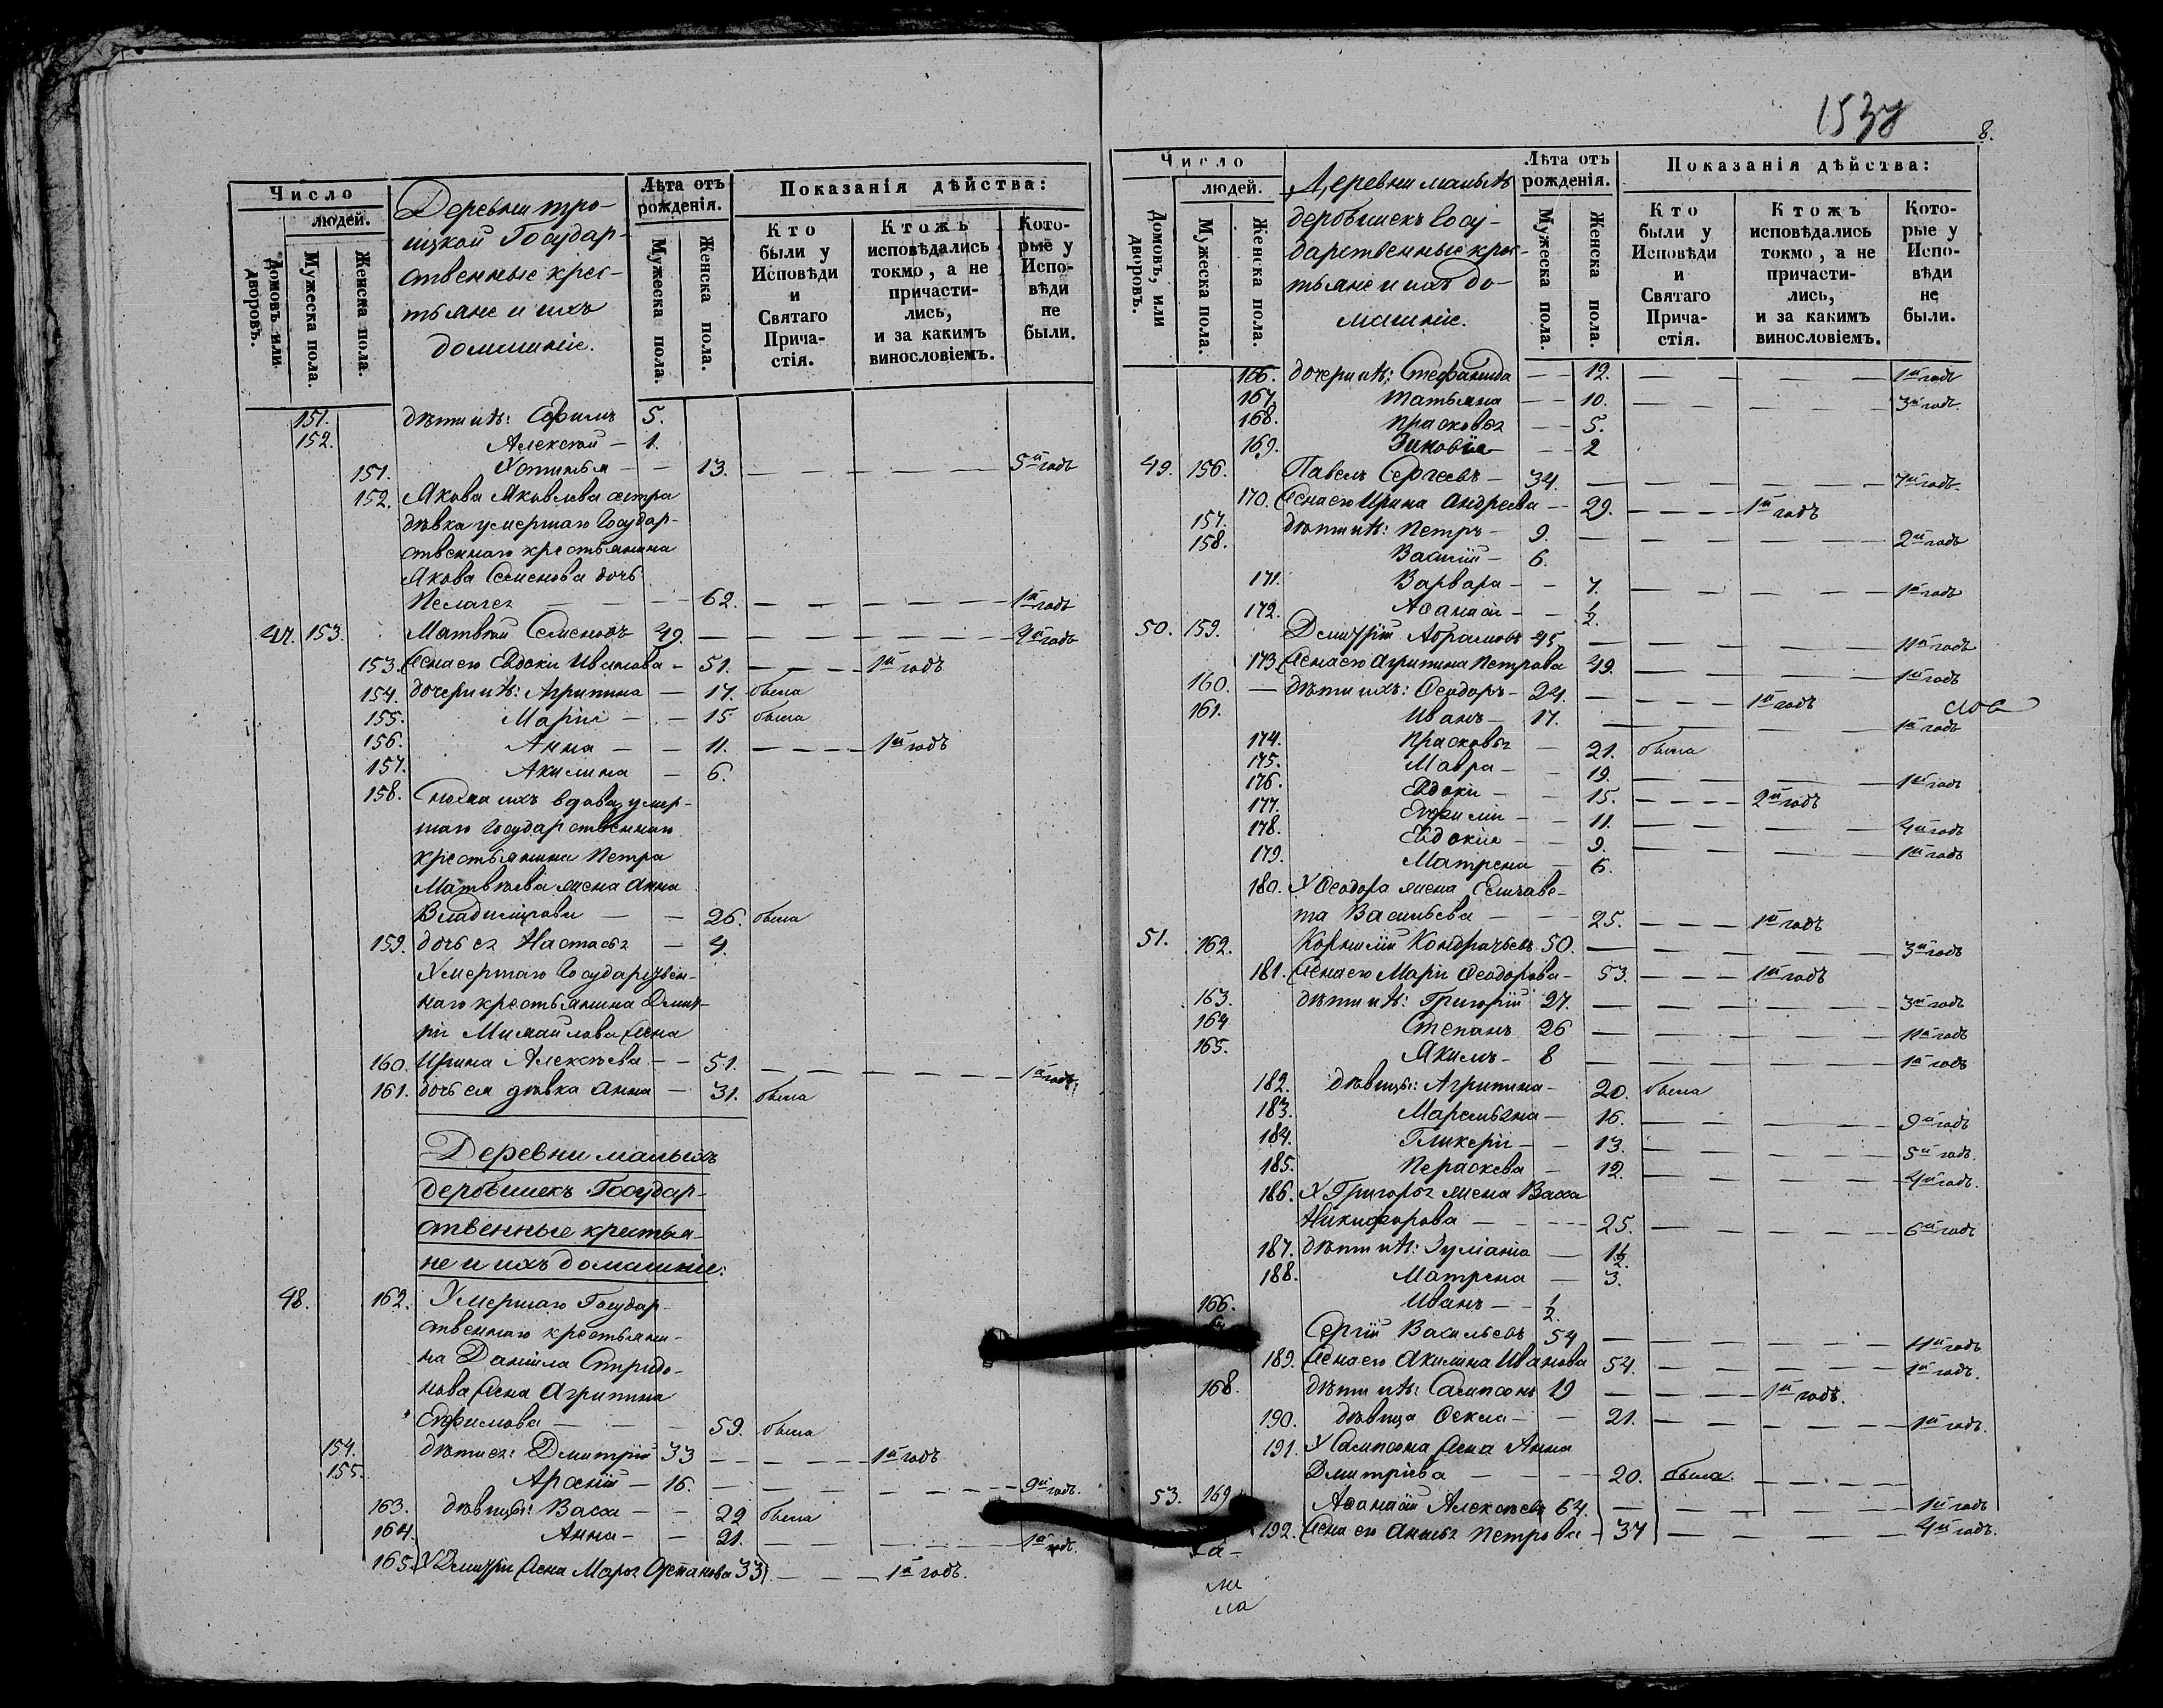 Число
людей.
Домовъ или дворовъ.
Мужеска пола.
Женска пола.
Деревни тро-
ицкой Государ-
ственные крес-
тьяне и ихъ
домашніе.
Лѣта отъ рожденія.
Мужеска пола.
Женска пола.
Показанія дѣйства:
Кто были у Исповѣди и Святаго Прича-стія.
Ктожъ исповѣдались токмо, а не причасти-лись, и за какимъ винословіемъ.
Кото-рые у Испо-вѣди не были.
151. дѣти ихъ: Ефимъ 5.
152. Алексѣй — 1.
151. Хотинья — — 13. — — — — — 5й годъ
152. Якова Яковлева сестра
дѣвка умершаго Государ-
ственнаго крестьянина
Якова Семенова дочь
Пелагея — — — 62. — — — — — 1й годъ
47. 153. Матвѣй Семеновъ 49. — — — — — 4й годъ
153. Жена его Евдокія Иванова — 51. — — — 1й годъ
154. дочери ихъ: Агрипина — 17. была
155. Марія — — 15. была
156. Анна — — 11. — — — 1й годъ
157. Акилина — 6.
158. Сноха ихъ вдова умер-
шаго Государственнаго
крестьянина Петра
Матвѣева жена Анна
Владимірова — — 26. была
159. дочь ея Настасья — 4.
Умершаго Государствен-
наго крестьянина Дмит-
рія Михайлова Жена
160. Ирина Алексѣева — — 51. — — — — — 1й годъ.
161. дочь ея дѣвка Анна — 31. была
Деревни малыхъ
дербышекъ Государ-
ственные крестья-
не и ихъ домашніе:
48. 162. Умершаго Государ-
ственнаго крестьяни-
на Даніила Спиридо-
нова Жена Агрипина
Ефимова — — — 59. была
154. дѣти ея: Дмитрій 33 — — — — 1й годъ
155. Арсеній — 16. — — — — — 9й годъ.
163. дѣвицы: Васса — — 22 была
164. Анна — — 21. — — — — — 1й годъ.
165. У Дмитрія Жена Марья 33. — — — 1й годъ.
1538
8.
Число
людей.
Домовъ, или дворовъ.
Мужеска пола.
Женска пола.
Деревни малыхъ
дербышекъ Госу-
дарственные крес-
тьяне и ихъ до-
машніе.
Лѣта отъ рожденія.
Мужеска пола.
Женска пола.
Показанія дѣйства:
Кто были у Исповѣди и Святаго Прича-стія.
Ктожъ исповѣдались токмо, а не причасти-лись, и за какимъ винословіемъ.
Кото-рые у Испо-вѣди не были.
166. дочери ихъ: Стефанида — — 12. — — — — 1й годъ
167. Татьяна — — 10. — — — — 3й годъ.
168. Прасковья — — 5.
169. Зиновія — — 2
49. 156. Павелъ Сергѣевъ — 34. — — — — — 7й годъ.
170. Жена его Ирина Андреева — 29. — — — 1й годъ
157. дѣти ихъ: Петръ — 9. — — — — — 2й годъ
158. Василій — 6.
171. Варвара — — 7. — — — — — 1й годъ
172. Афанасія — — 1/2.
50. 159. Дмитрій Абрамовъ 45 — — — — — 11й годъ
173. Жена его Агрипина Петрова 49. — — — — 1й годъ
160. — дѣти ихъ: Ѳеодоръ — 24. — — — — 1й годъ
161. Иванъ — 17. — — — 1й годъ
174. Прасковья — 21. была
175. Мавра — — 19. — — — — 1й годъ
176. Евдокія — — 15. — — — 2й годъ
177. Евфимія — — 11. — — — — 4й годъ
178. Евдокія — — 9. — — — — 1й годъ
179. Матрена — 6.
180. У Ѳеодора жена Елизаве-
та Васильева — — — 25. — — — 1й годъ
51. 162. Корнилій Кондратьевъ. 50. — — — — 3й годъ
181. Жена его Марія Ѳеодорова — 53. — — — 1й годъ
163. дѣти ихъ: Григорій 27. — — — — — 3й годъ
164 Степанъ 26 — — — — — 11й годъ
165. Якимъ — 8 — — — — — 1й годъ
182. дѣвицы: Агрипина — 20. была
183. Маремьяна — 16. — — — — 9й годъ
184. Гликерія — — 13. — — — — 5й годъ.
185. Пераскева — 12. — — — — 4й годъ.
186. У Григорья жена Васса
Никифорова — — — — 25. — — — — 6й годъ
187. дѣти ихъ: Іуліанія — 1 1/2.
188. Матрена — 3.
166. Иванъ — — 1/2.
Сергій Васильевъ 54 — — — — — 11й годъ
189. Жена его Акилина Иванова 54. — — — — 1й годъ.
168. дѣти ихъ: Сампсонъ 19 — — — — 1й годъ.
190. дѣвица Ѳекла — — 21. — — — — — 1й годъ.
191. У Сампсона Жена Анна
Дмитріева — — — — 20. была. — — — —
53. 169 Афанасій Алексѣевъ 64. — — — — — 1й годъ
192. Жена его Анисья Петрова — 37 — — — — — 4й годъ.
ли
ла